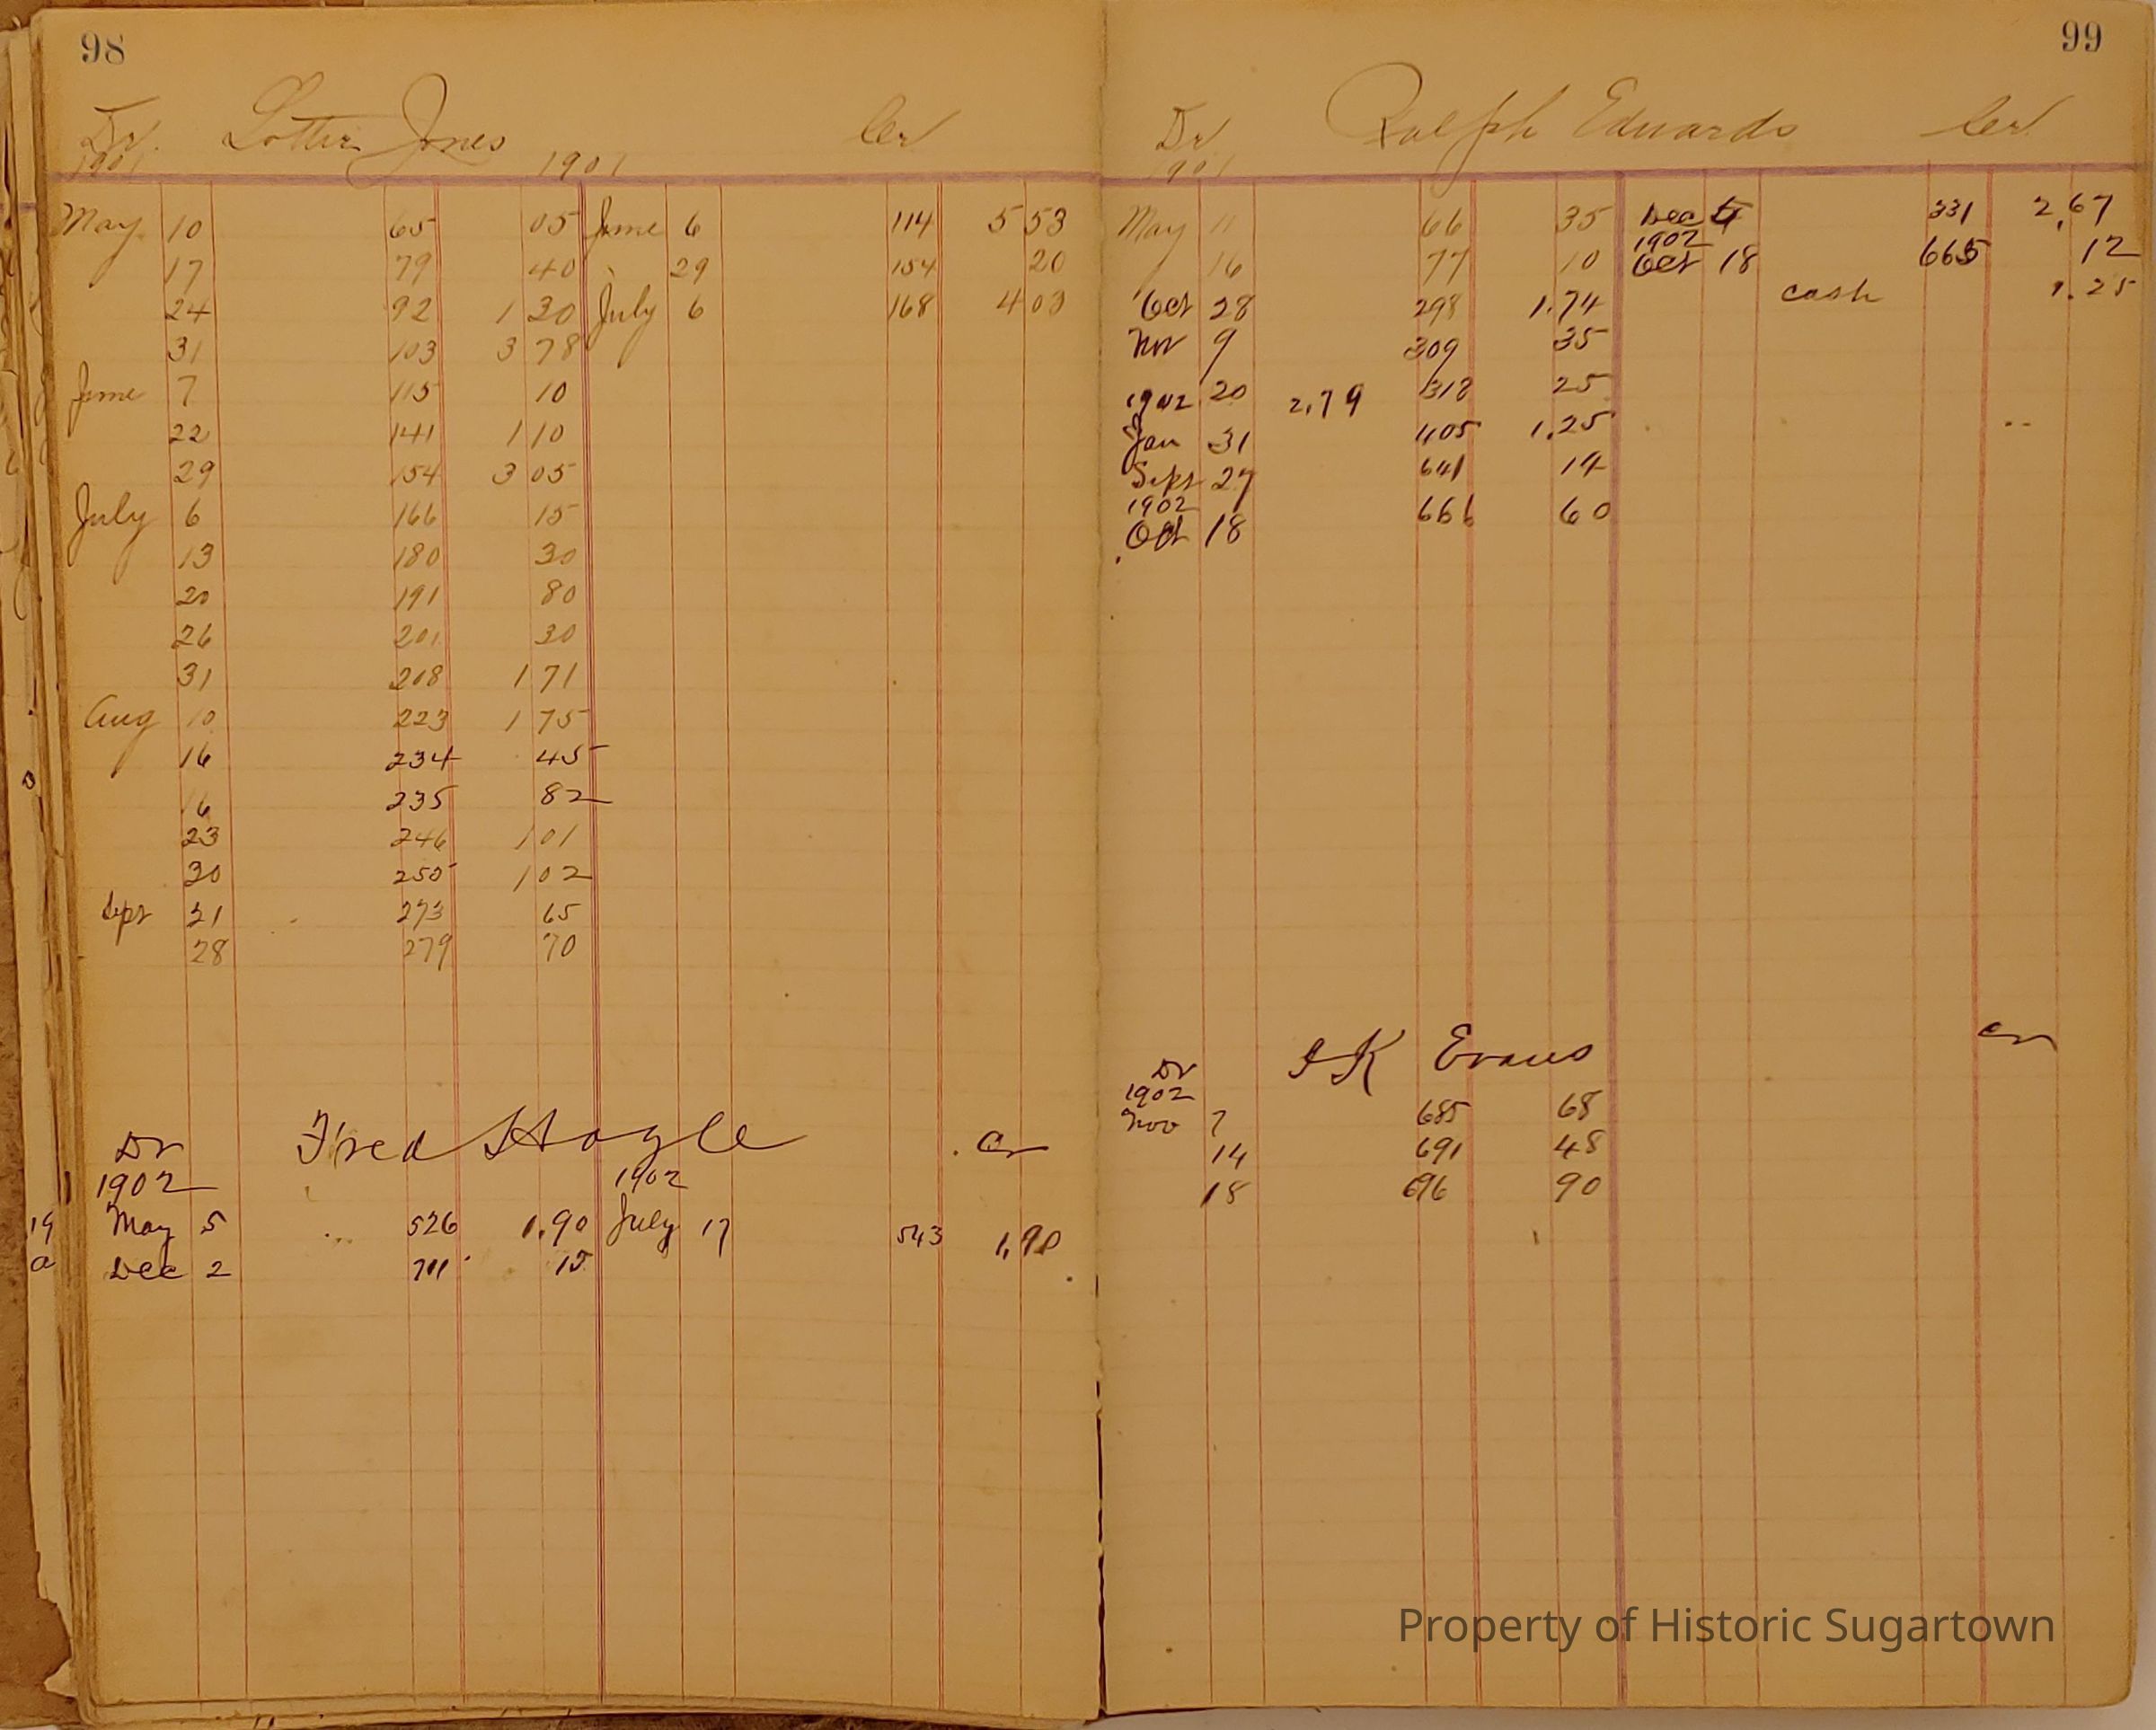 98
Dr. Lottie Jones Cr
1901 1901
May 10 65 05 June 6 114 5 53
17 79 40 29 154 20
24 92 1 30 July 6 168 4 03
31 103 3 78
June 7 115 10
22 141 1 10
29 154 3 05
July 6 166 15
13 180 30
20 191 80
26 201 30
31 218 1 71
Aug 10 223 1 75
16 234 45
16 235 82
23 246 1 01
30 255 1 02
Sept 21 273 65
28 279 70
Dr Fred Hoyle Cr
1902 1902
May 5 526 1.90 July 17 543 1,90
Dec 2 711 15
99
Dr Ralph Edwards Cr
1901
May 11 66 35 Dec 331 2,67
1902
16 77 10 Oct 18 665 12
Oct 28 298 1.74 cash 1.25
Nov 9 309 35
20 2,79 318 25
1902
Jan 31 405 1.25
Sept 27 641 14
1902 666 60
Oct 18
Dr I K Evans Cr
1902
Nov 7 685 68
14 691 48
18 696 90
Property of Historic Sugartown